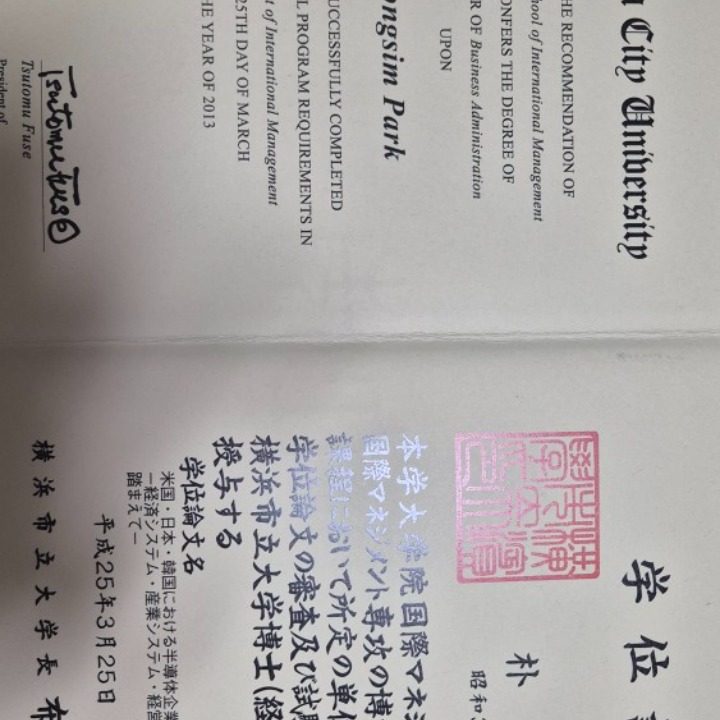 City University
THE RECOMMENDATION OF
School of International Management
CONFERS THE DEGREE OF
OF Business Administration
UPON
Park
SUCCESSFULLY COMPLETED
PROGRAM REQUIREMENTS IN
of International Management
25TH DAY OF MARCH
THE YEAR OF 2013
Tsutomu Fuse
Tsutomu Fuse
President of
学位
朴
昭和
本学大学院国際マネジ
国際マネジメント専攻の博
課程において所定の単位
学位論文の審査及び試験
横浜市立大学博士(経
授与する
学位論文名
米国・日本・韓国における半導体企業
ー経済システム・産業システム・経営
踏まえてー
平成25年3月25日
横浜市立大学長 布